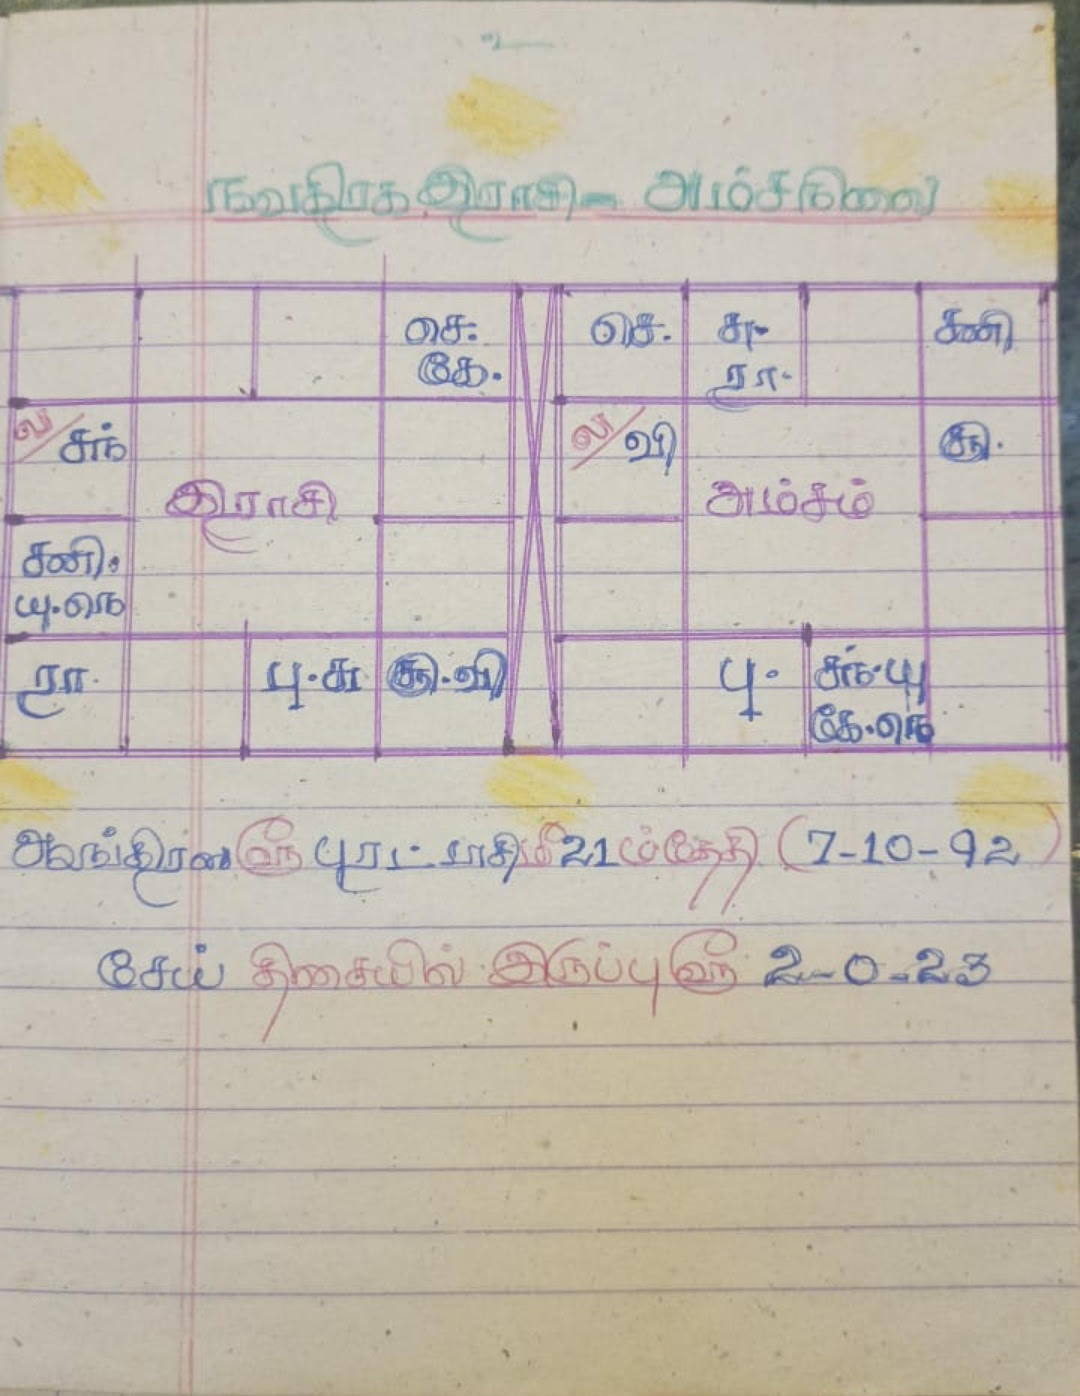 உ
நவகிரக இராசி - அம்சநிலை
செ. செ. சு. சனி
கே. ரா.
ல/ சந் ல/ வி சூ.
இராசி அம்சம்
சனி.
யு.நெ
ரா. பு.சு சூ.வி பு. சந்.யு
கே.நெ
ஆங்கிரஸ ௵ புரட்டாசி மீ 21ம்தேதி (7-10-92)
சேய் திசையில் இருப்பு ௵ 2-0-23